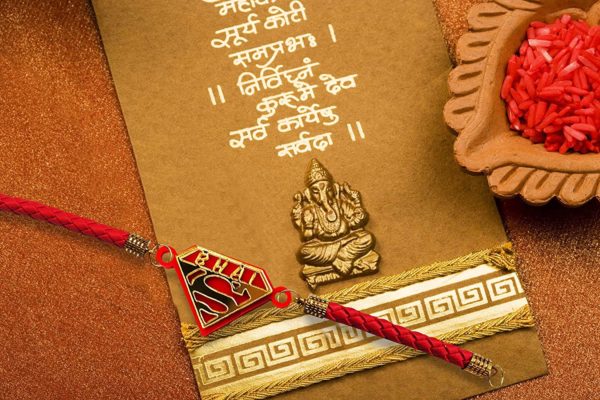 सूर्य कोटी
समप्रभः ।
॥ निर्विघ्नं
कुरूमे देव
सर्व कार्येषु
सर्वदा ॥
BHAI
S